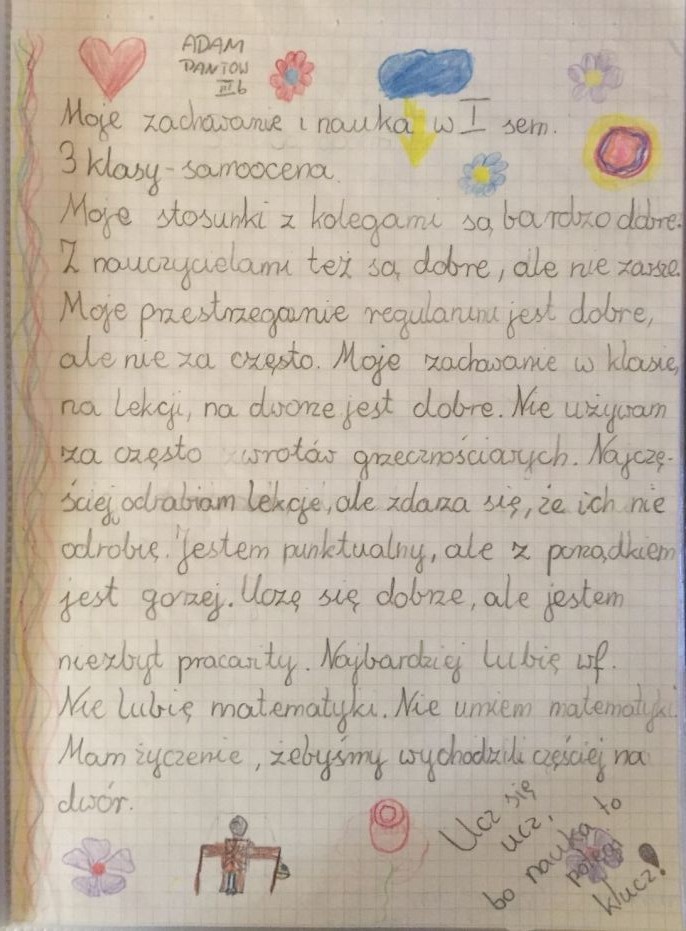 ADAM
PANTOW
III b
Moje zachowanie i nauka w I sem.
3 klasy - samoocena.
Moje stosunki z kolegami są bardzo dobre.
Z nauczycielami też są dobre, ale nie zawsze.
Moje przestrzeganie regulaminu jest dobre,
ale nie za często. Moje zachowanie w klasie,
na lekcji, na dworze jest dobre. Nie używam
za często zwrotów grzecznościowych. Najczę-
ściej odrabiam lekcje, ale zdarza się, że ich nie
odrobię. Jestem punktualny, ale z porządkiem
jest gorzej. Uczę się dobrze, ale jestem
niezbyt pracowity. Najbardziej lubię wf.
Nie lubię matematyki. Nie umiem matematyki.
Mam życzenie, żebyśmy wychodzili częściej na
dwór.
Ucz się
ucz,
bo nauka to
potęgi
klucz!